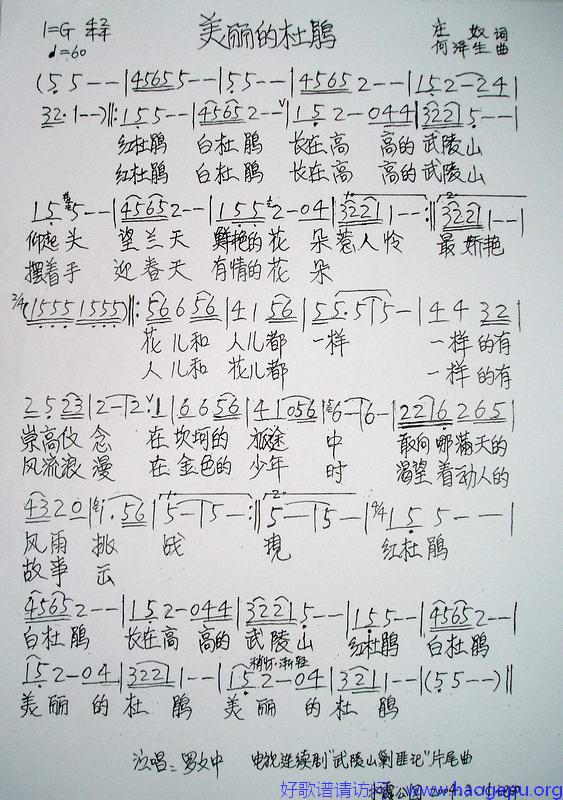 美丽的杜鹃
1=G 4/4 2/4
♩=60
庄奴 词
何泽生 曲
(5 5 - - | 4565 5 - - | 5 5 - - | 4565 2 - - | 1 5 2 - 2 4 |
32·1 - -) ‖: 1 5 5 - - | 4565 2 - - ∨ | 1 5 2 - 0 4 4 | 3221 5 - - |
红杜鹃 白杜鹃 长在高 高的武陵山
红杜鹃 白杜鹃 长在高 高的武陵山
1 5 5 - - | 4565 2 - - | 1 5 5 2 - 0 4 | 3221 1 - - :‖ 3221 1 - - |
仰起头 望兰天 鲜艳的花 朵惹人怜 最娇艳
摆着手 迎春天 有情的花 朵
2/4 (1555 1555) ‖: 56 6 56 | 4 1 56 | 55·5 | 5 - | 4 4 32 |
花儿和 人儿都 一样 一样的有
人儿和 花儿都 一样的有
2 5 23 | 2 - | 2 ∨ 1 | 6 6 56 | 4 1056 | 6 - | 6 - | 2216 265 |
崇高仪念 在坎坷的 旅途 中 敢向哪满天的
风流浪漫 在金色的 少年 时 渴望着动人的
4320 | 1· 56 | 5 - | 5 - :‖ 5 - | 5 - | 4/4 1 5 5 - - |
风雨 挑 战 现 红杜鹃
故事 云
4565 2 - - | 1 5 2 - 0 4 4 | 3221 5 - - | 1 5 5 - - | 4565 2 - - |
白杜鹃 长在高 高的 武陵山 红杜鹃 白杜鹃
稍切·渐轻
1 5 2 - 0 4 | 3221 1 - - | 1 5 2 - 0 4 | 3221 1 - - | (5 5 - -) ‖
美丽 的 杜 鹃 美丽 的 杜 鹃
演唱:罗文中 电视连续剧"武陵山剿匪记"片尾曲
好歌谱请访
www.haogepu.org